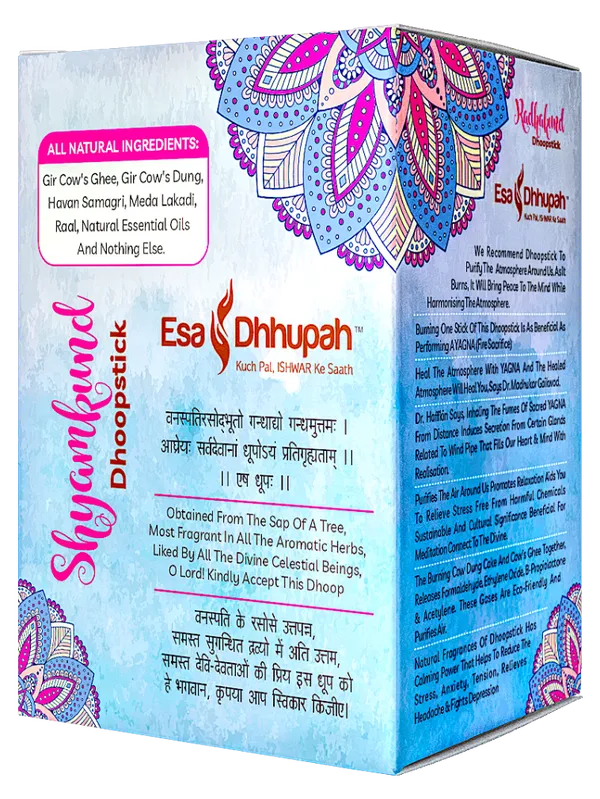 ALL NATURAL INGREDIENTS:
Gir Cow's Ghee, Gir Cow's Dung,
Havan Samagri, Meda Lakadi,
Raal, Natural Essential Oils
And Nothing Else.
Shyamkund
Dhoopstick
Esa Dhhupah™
Kuch Pal, ISHWAR Ke Saath
वनस्पतिरसोद्भूतो गन्धाद्यो गन्धमुत्तमः ।
आघ्रेयः सर्वदेवानां धूपोऽयं प्रतिगृह्यताम् ।।
।। एष धूपः ।।
Obtained From The Sap Of A Tree,
Most Fragrant In All The Aromatic Herbs,
Liked By All The Divine Celestial Beings,
O Lord! Kindly Accept This Dhoop
वनस्पति के रसोसे उत्तपन्न,
समस्त सुगन्धित द्रव्यो में अति उत्तम,
समस्त देवि-देवताओं की प्रिय इस धूप को
हे भगवान, कृपया आप स्विकार किजीए।
Radhakund
Dhoopstick
Esa Dhhupah™
Kuch Pal, ISHWAR Ke Saath
We Recommend Dhoopstick To
Purify The Atmosphere Around Us. As It
Burns, It Will Bring Peace To The Mind While
Harmonising The Atmosphere.
Burning One Stick Of This Dhoopstick Is As Beneficial As
Performing A YAGNA (Fire Sacrifice)
Heal The Atmosphere With YAGNA And The Healed
Atmosphere Will Heal You, Says Dr. Madhukar Gaiawad.
Dr. Haffian Says, Inhaling The Fumes Of Sacred YAGNA
From Distance Induces Secretion From Certain Glands
Related To Wind Pipe That Fills Our Heart & Mind With
Realisation.
Purifies The Air Around Us Promotes Relaxation Aids You
To Relieve Stress Free From Harmful Chemicals
Sustainable And Cultural Significance Beneficial For
Meditation Connect To The Divine.
The Burning Cow Dung Cake And Cow's Ghee Together,
Releases Formaldehyde, Ethylene Oxide, B-Propiolactone
& Acetylene. These Gases Are Eco-Friendly And
Purifies Air.
Natural Fragrances Of Dhoopstick Has
Calming Power That Helps To Reduce The
Stress, Anxiety, Tension, Relieves
Headache & Fights Depression